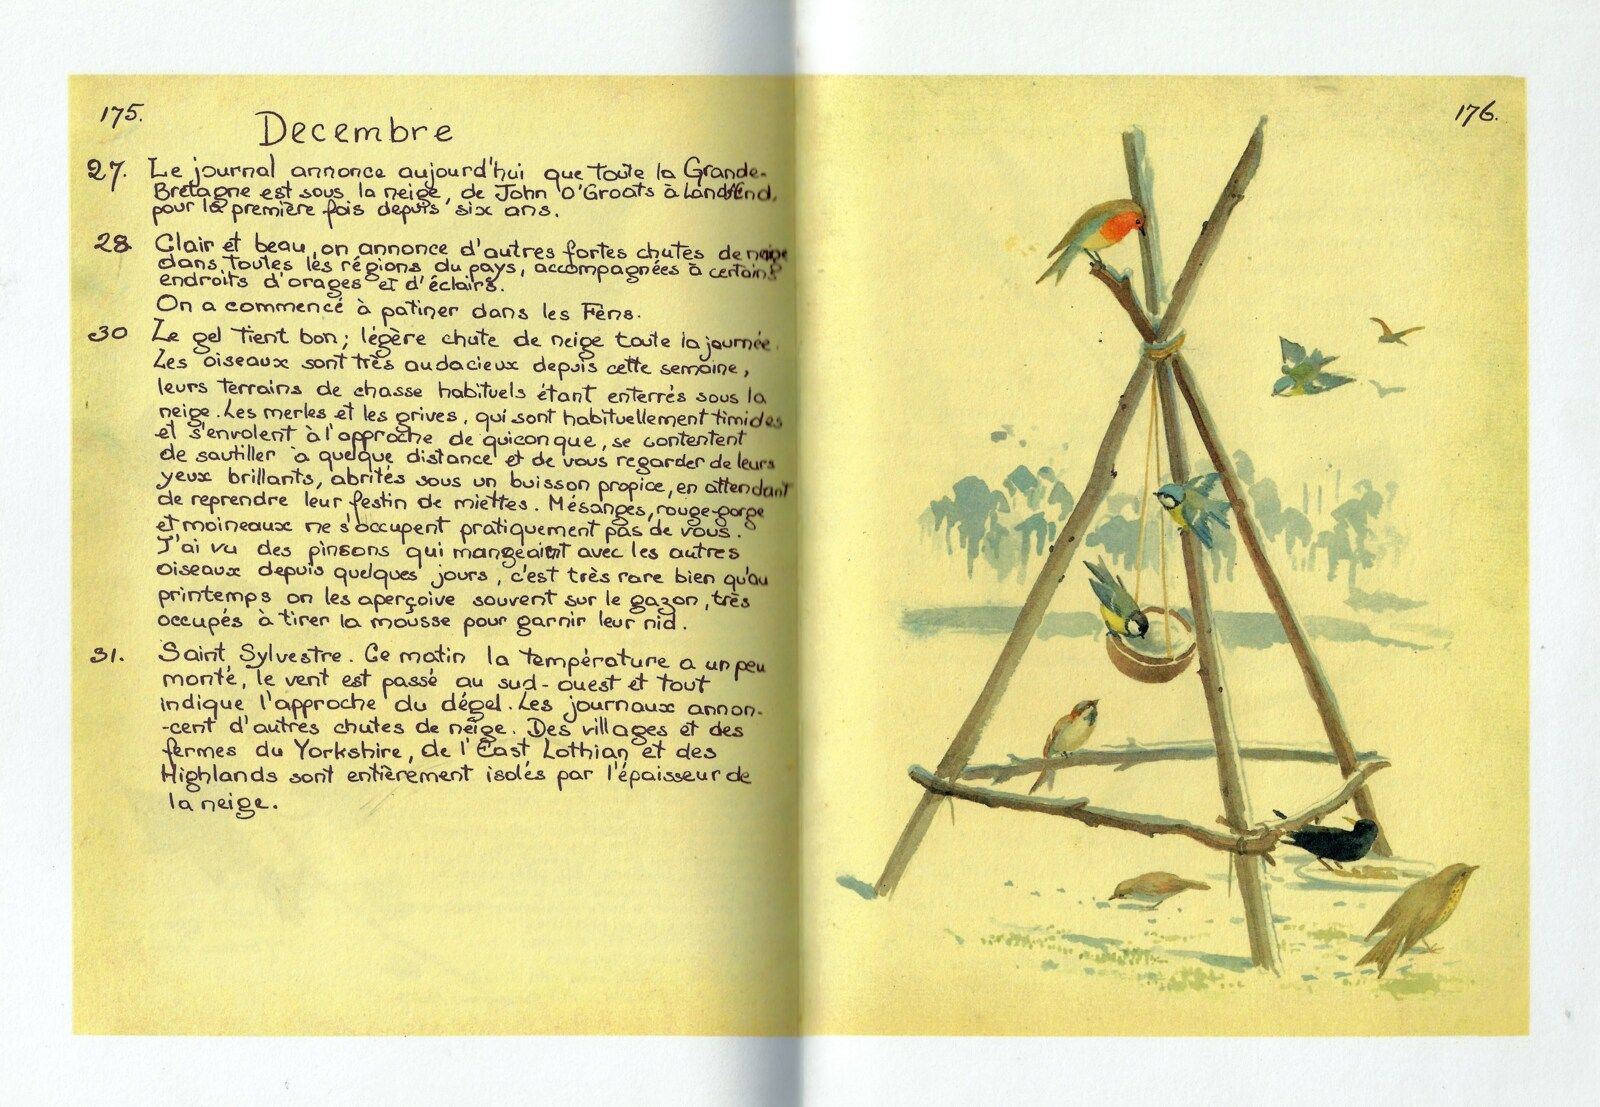 175.
Decembre
27. Le journal annonce aujourd'hui que toute la Grande-
Bretagne est sous la neige, de John O'Groats à Land's End,
pour la première fois depuis six ans.
28 Clair et beau, on annonce d'autres fortes chutes de neige
dans toutes les régions du pays, accompagnées à certains
endroits d'orages et d'éclairs.
On a commencé à patiner dans les Fens.
30 Le gel tient bon; légère chute de neige toute la journée.
Les oiseaux sont très audacieux depuis cette semaine,
leurs terrains de chasse habituels étant enterrés sous la
neige. Les merles et les grives, qui sont habituellement timides
et s'envolent à l'approche de quiconque, se contentent
de sautiller à quelque distance et de vous regarder de leurs
yeux brillants, abrités sous un buisson propice, en attendant
de reprendre leur festin de miettes. Mésanges, rouge-gorge
et moineaux ne s'occupent pratiquement pas de vous.
J'ai vu des pinsons qui mangeaient avec les autres
oiseaux depuis quelques jours, c'est très rare bien qu'au
printemps on les aperçoive souvent sur le gazon, très
occupés à tirer la mousse pour garnir leur nid.
31. Saint Sylvestre. Ce matin la température a un peu
monté, le vent est passé au sud-ouest et tout
indique l'approche du dégel. Les journaux annon-
-cent d'autres chutes de neige. Des villages et des
fermes du Yorkshire, de l'East Lothian et des
Highlands sont entièrement isolés par l'épaisseur de
la neige.
176.